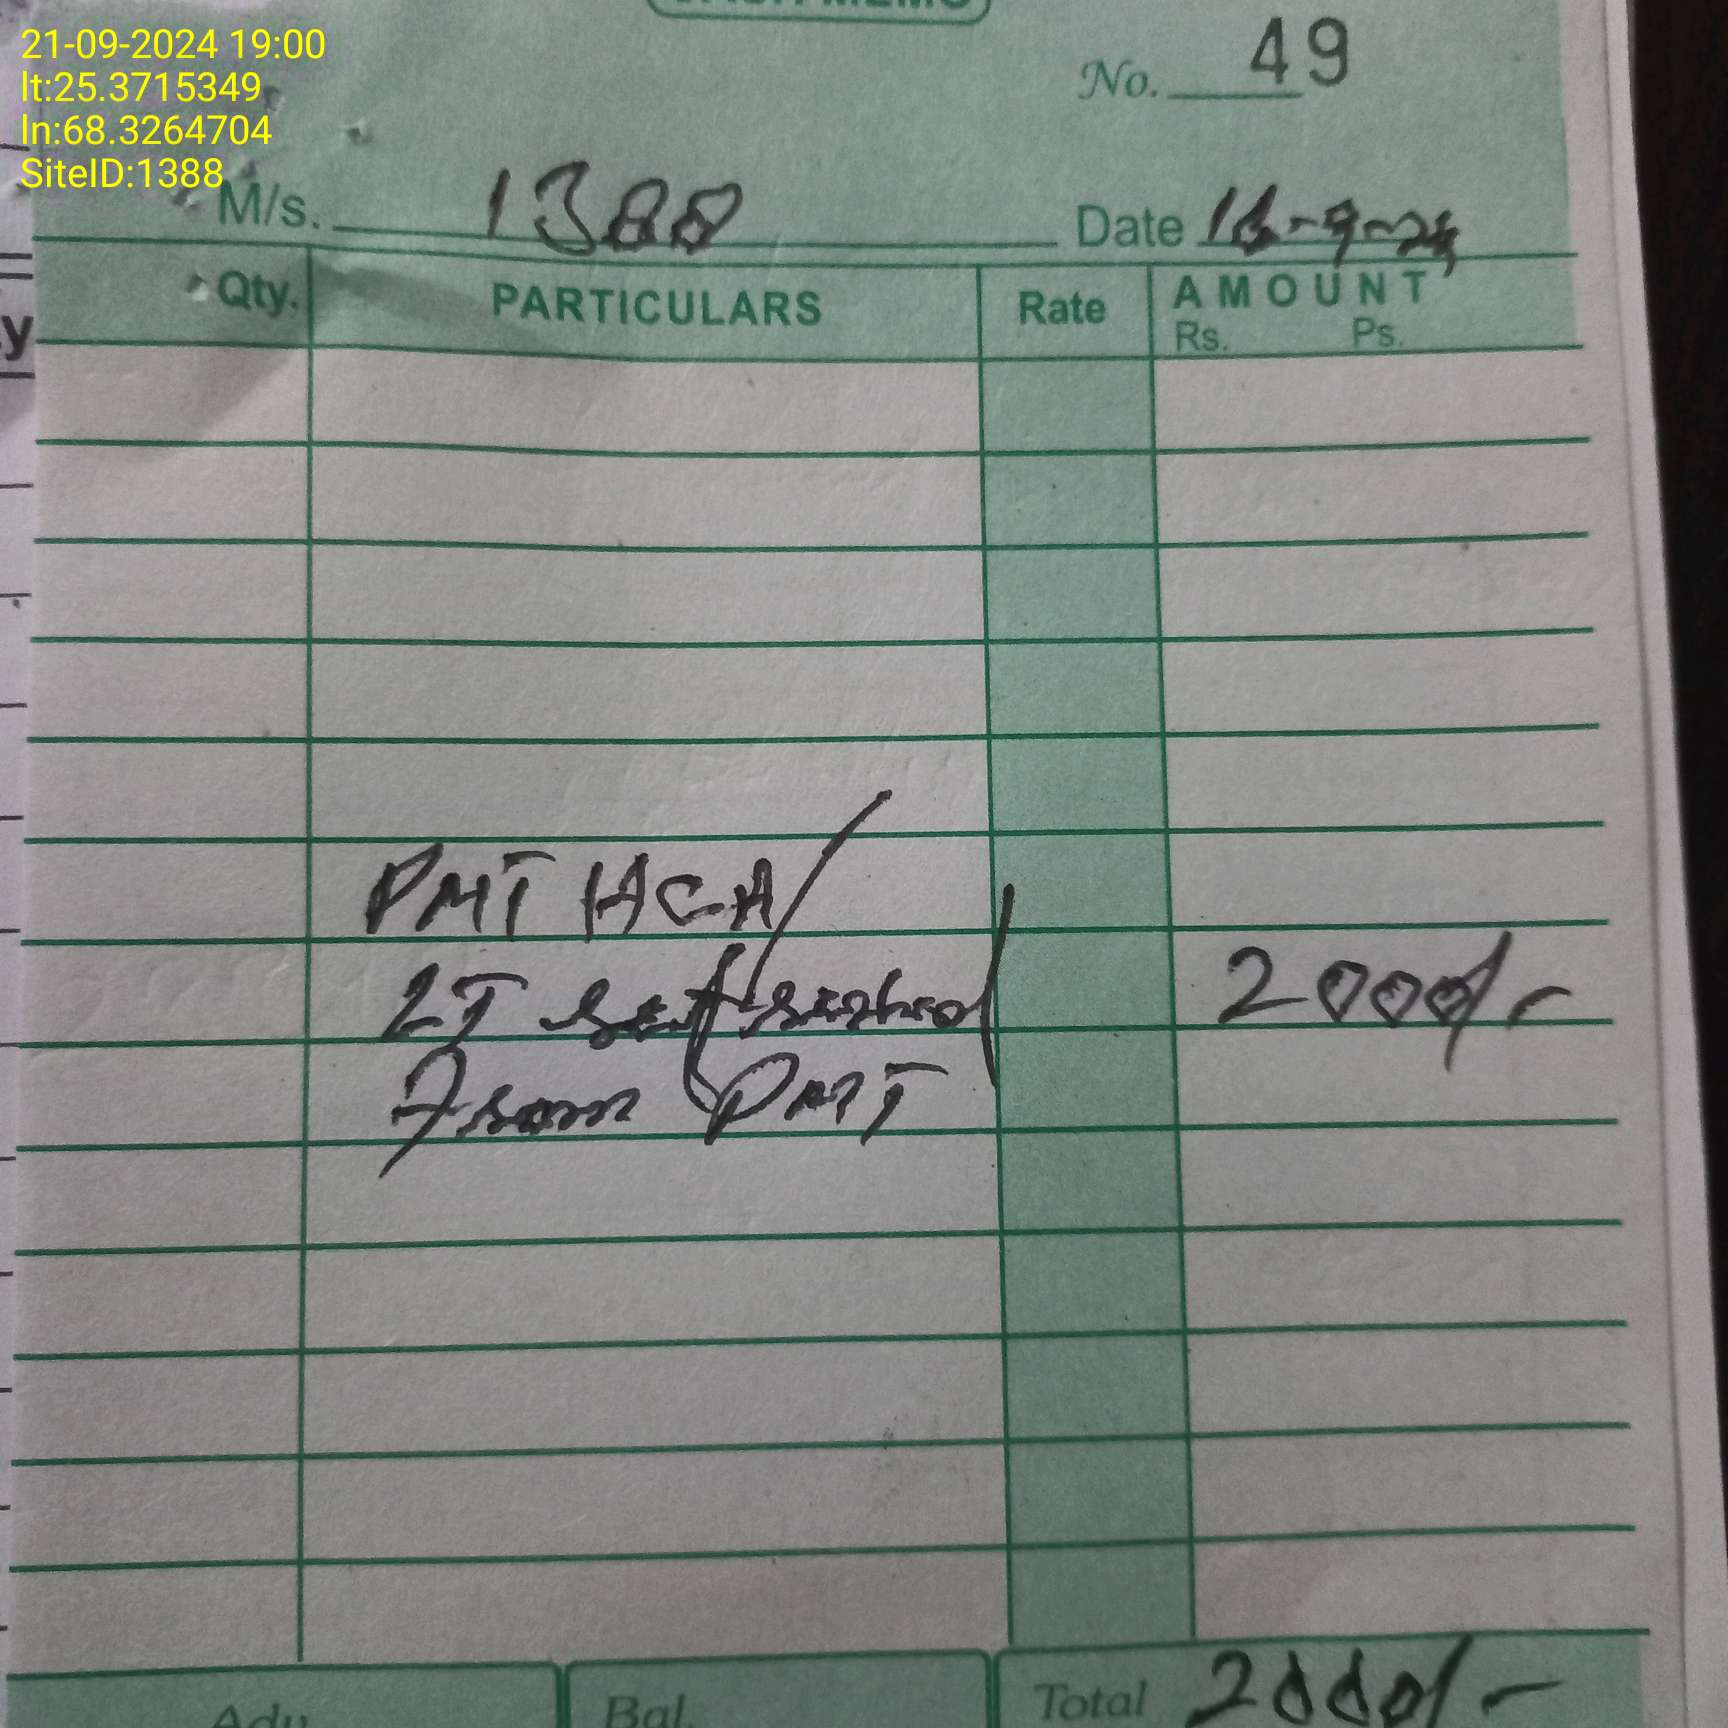 21-09-2024 19:00
lt:25.3715349
ln:68.3264704
SiteID:1388
CASH MEMO
No. 49
M/s. 1388 Date 16-9-24
Qty. PARTICULARS Rate AMOUNT
Rs. Ps.
y
PMT HCA
LT set 2000/-
From PMT
Adv. Bal. Total 2000/-